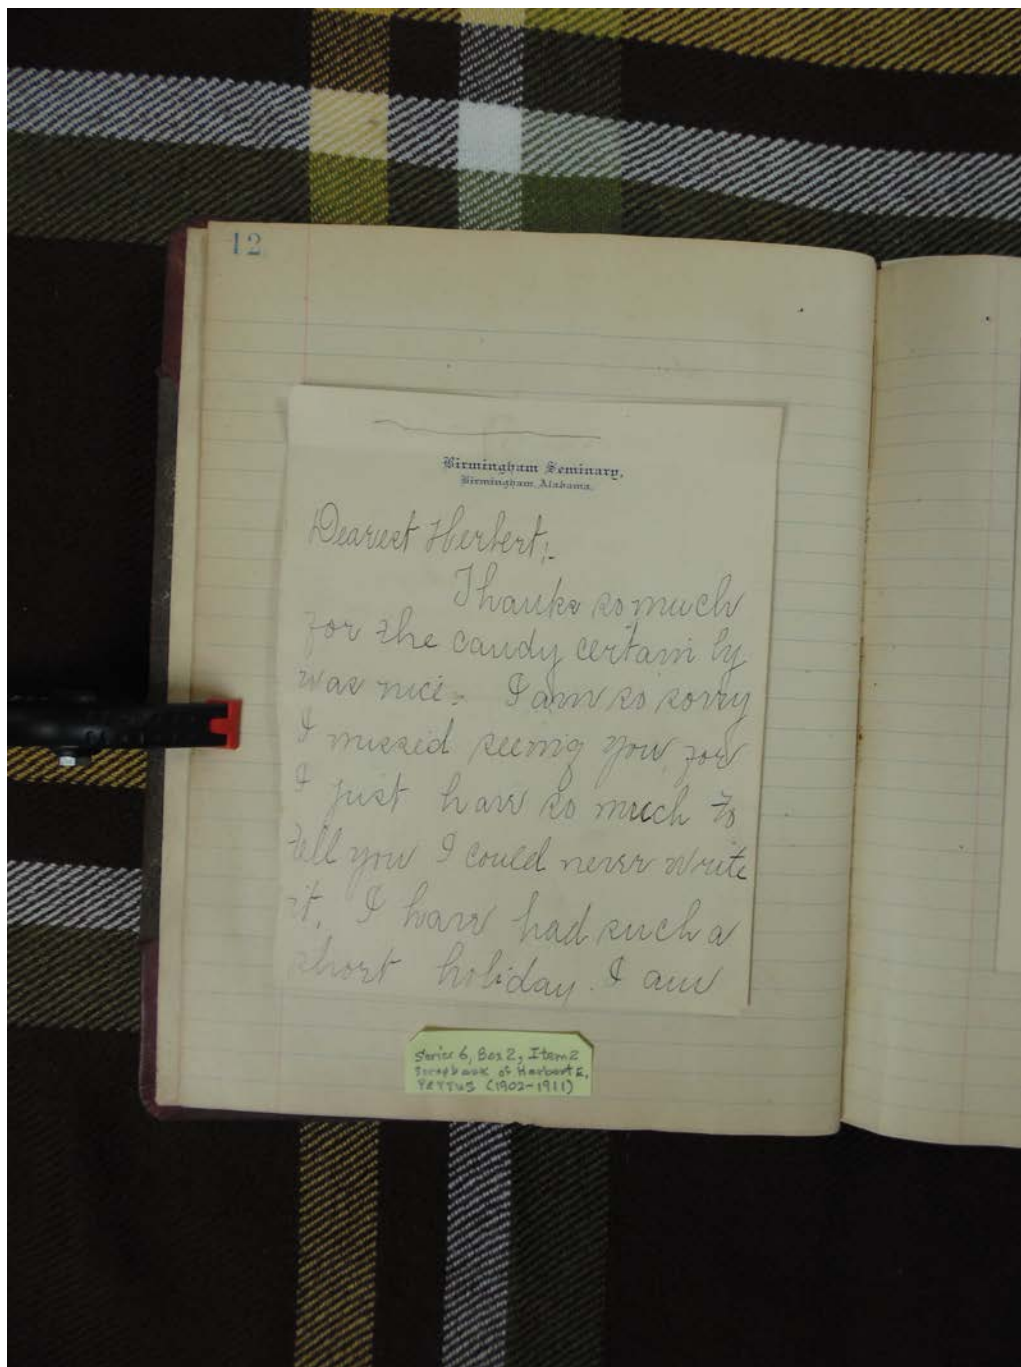 12
Birmingham Seminary,
Birmingham, Alabama.
Dearest Herbert:-
Thanks so much
for the candy certainly
was nice. I am so sorry
I missed seeing you, for
I just have so much to
tell you I could never write
it. I have had such a
short holiday. I am
Series 6, Box 2, Item 2
Scrapbook of Herbert E.
PETTUS (1902-1911)